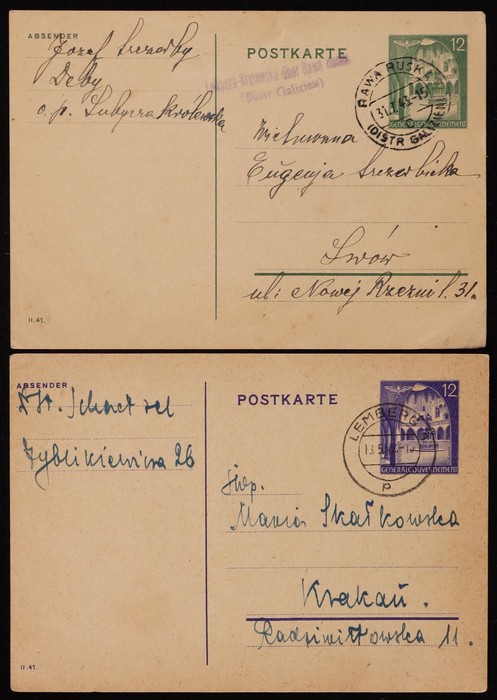 ABSENDER
Józef
Deby
o. p. Lubycza Królewska
POSTKARTE
über Rawa Ruska
(Distr Galizien)
12
GENERALGOUVERNEMENT
RAWA RUSKA
31.1.43-15
(DISTR GALIZIEN)
Wielmożna
Eugenja Szczerbicka
Lwów
ul: Nowej Rzezni l. 31.
II.41.
ABSENDER
Zyblikiewicza 26
POSTKARTE
12
GENERALGOUVERNEMENT
LEMBERG
p
Śwp.
Maria Skałkowska
Krakau.
Radziwiłłowska 11.
II.41.